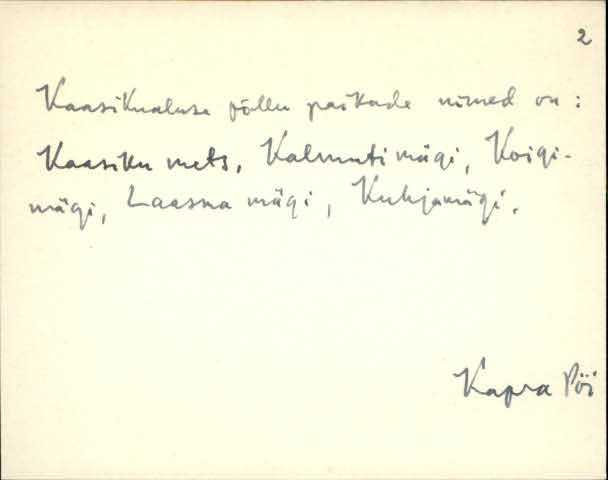 2
Kaasikualuse põllu paikade nimed on :
Kaasiku mets, Kalmuti mägi, Koigi-
mägi, Laasna mägi, Kuhjamägi.
Kapra Pöi